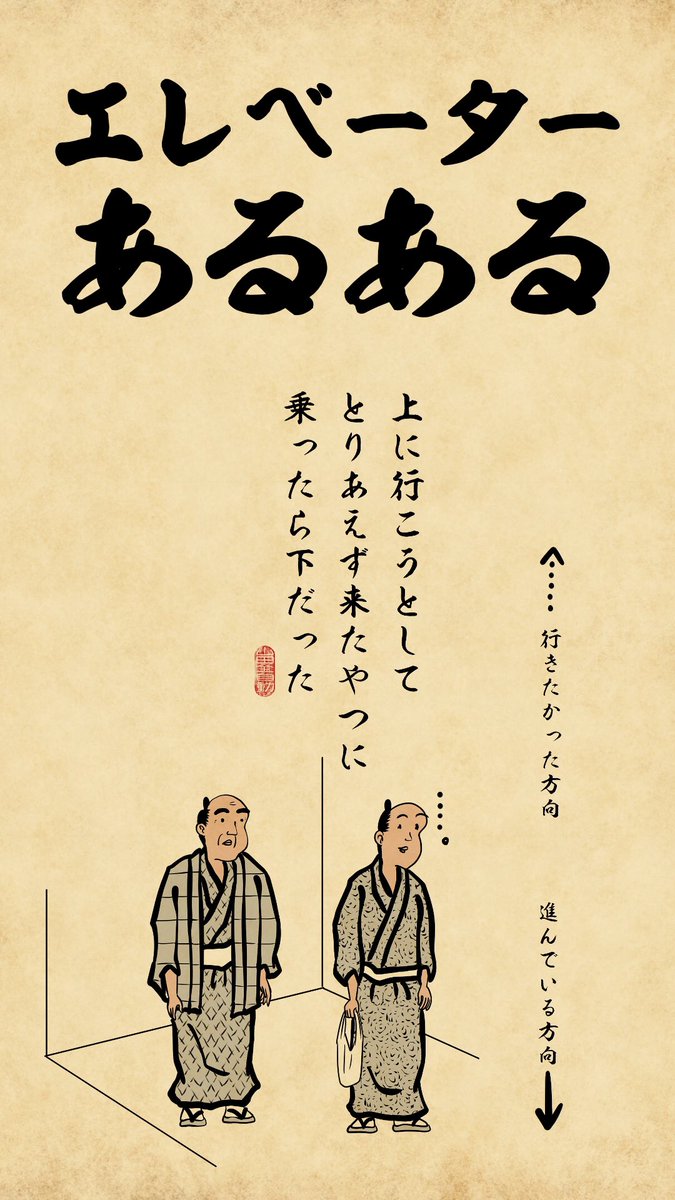 エレベーター
あるある
上に行こうとして
とりあえず来たやつに
乗ったら下だった
行きたかった方向
進んでいる方向